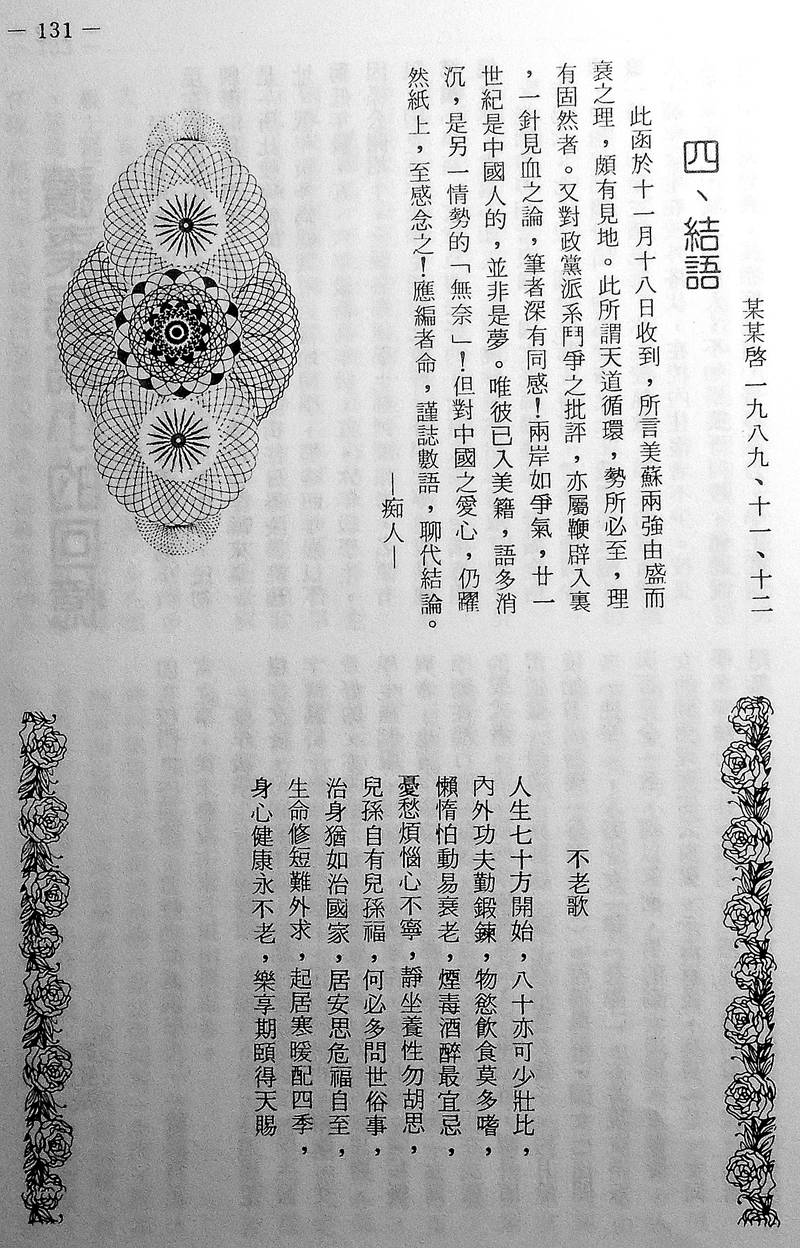 — 131 —
某某啓一九八九、十一、十二
四、結語
此函於十一月十八日收到，所言美蘇兩強由盛而
衰之理，頗有見地。此所謂天道循環，勢所必至，理
有固然者。又對政黨派系鬥爭之批評，亦屬鞭辟入裏
，一針見血之論，筆者深有同感！兩岸如爭氣，廿一
世紀是中國人的，並非是夢。唯彼已入美籍，語多消
沉，是另一情勢的「無奈」！但對中國之愛心，仍躍
然紙上，至感念之！應編者命，謹誌數語，聊代結論。
—痴人—
不老歌
人生七十方開始，八十亦可少壯比，
內外功夫勤鍛鍊，物慾飲食莫多嗜，
懶惰怕動易衰老，煙毒酒醉最宜忌，
憂愁煩惱心不寧，靜坐養性勿胡思，
兒孫自有兒孫福，何必多問世俗事，
治身猶如治國家，居安思危福自至，
生命修短難外求，起居寒暖配四季，
身心健康永不老，樂享期頤得天賜